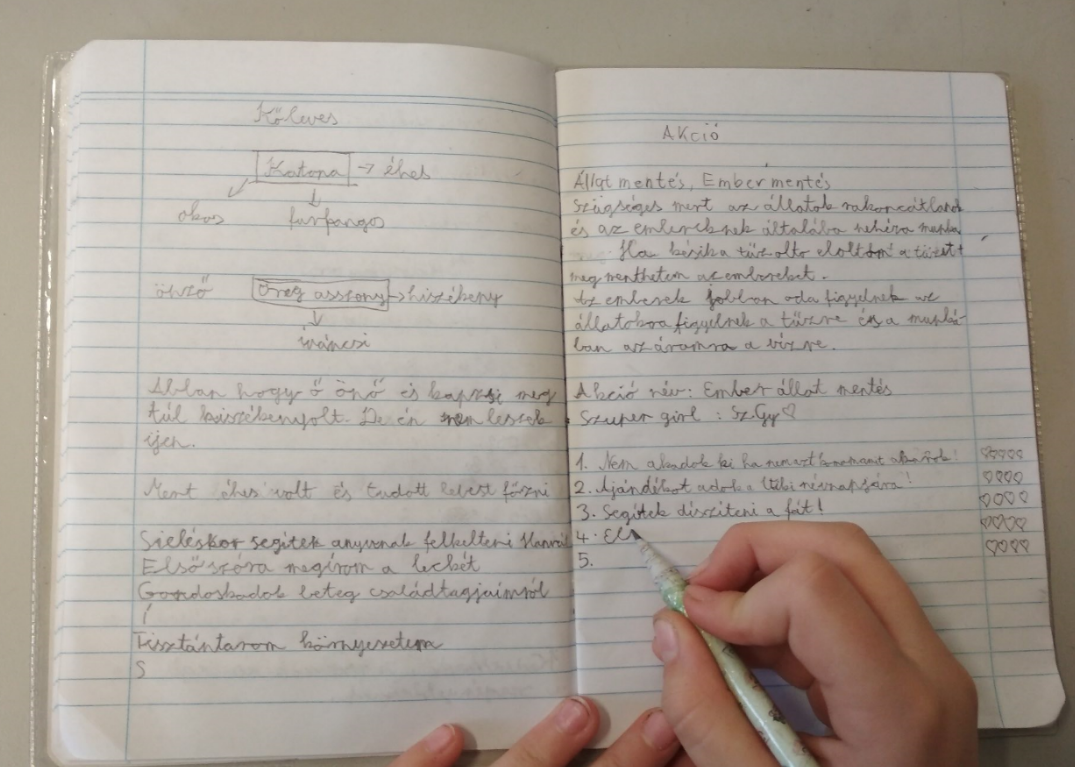 Kőleves
Katona → éhes
okos furfangos
önző Öreg asszony → hiszékeny
kíváncsi
Abban hogy ő önő és kapzsi meg
túl hiszékenyvolt. De én nem leszek
ijen.
Ment éhes volt és tudott levest főzni
Sieléskor segitek anyunak felkelteni
Első szóra megírom a leckét
Gondoskodok beteg családtagjaimról
Í
Tisztántarom környezetem
S
AKció
Állat mentés, Ember mentés
Szügséges mert az állatok rakoncátlanok
és az embereknek általába nehéza munka
Ha késika tűzolto eloltom a tüzet
meg menthetem az embereket.
Az emberek jobban oda figyelnek az
állatokra figyelnek a tűzre és a munká-
ban az áramra a vízre.
Akció név: Ember állat mentés
Szuper girl : Sz.Gy♡
1. Nem akadok ki ha nem ♡♡♡♡
2. Ajándékot adok a névnapjára! ♡♡♡♡
3. Segitek díszíteni a fát! ♡♡♡♡
4. El ♡♡♡♡
5. ♡♡♡♡